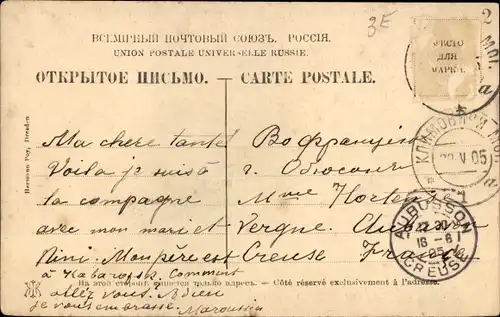 3E
ВСЕМІРНЫЙ ПОЧТОВЫЙ СОЮЗЪ. РОССІЯ.
UNION POSTALE UNIVERSELLE RUSSIE.
ОТКРЫТОЕ ПИСЬМО. — CARTE POSTALE.
МѢСТО
ДЛЯ
МАРКИ.
Hermann Poy, Dresden
Ma chere tante
Voila je suis à
la compagne
avec mon mari et
Nini. Mon père est
à Kabarofsk. Comment
allez vous. Adieu
je vous embrasse.
Maroussia
Во Францію
г. Обюсонъ
Mme Hortense
Vergne. Aubusson
Creuse France
КЛИМОВИЧИ
22 V 05
AUBUSSON
22 30
16-6
05
CREUSE
На этой сторонѣ пишется только адресъ. — Côté réservé exclusivement à l'adresse.